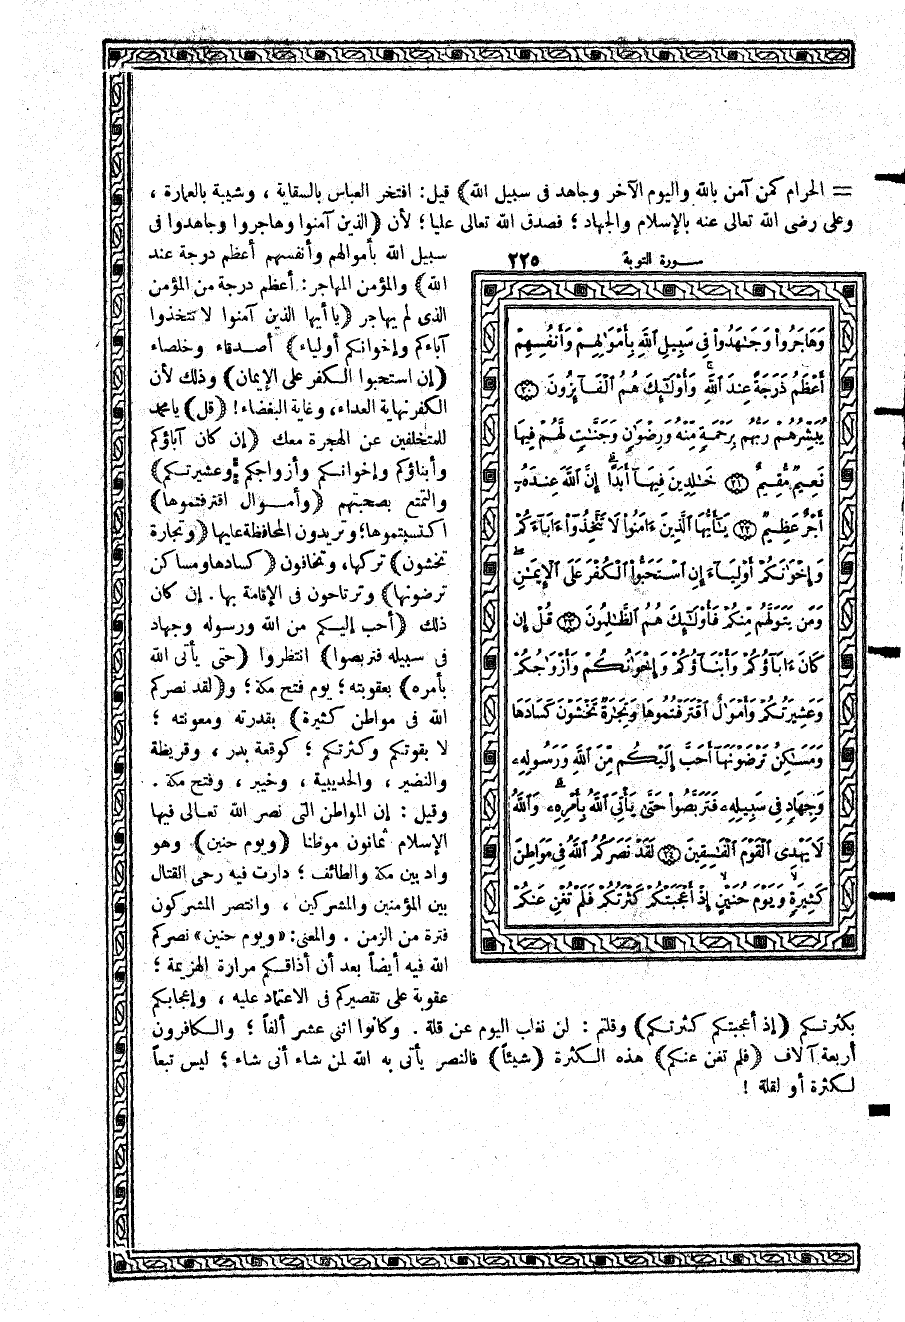 = الحرام كمن آمن بالله واليوم الآخر وجاهد فى سبيل الله) قيل: افتخر العباس بالسقاية ، وشيبة بالعمارة ،
وعلى رضى الله تعالى عنه بالإسلام والجهاد ؛ فصدق الله تعالى عليا ؛ لأن (الذين آمنوا وهاجروا وجاهدوا فى
سبيل الله بأموالهم وأنفسهم أعظم درجة عند
الله) والمؤمن المهاجر: أعظم درجة من المؤمن
الذى لم يهاجر (يا أيها الذين آمنوا لا تتخذوا
آباءكم وإخوانكم أولياء) أصدقاء وخلصاء
(إن استحبوا الكفر على الإيمان) وذلك لأن
الكفر نهاية العداء، وغاية البغضاء! (قل) يا محمد
للمتخلفين عن الهجرة معك (إن كان آباؤكم
وأبناؤكم وإخوانكم وأزواجكم وعشيرتكم)
والتمتع بصحبتهم (وأموال اقترفتموها)
اكتسبتموها؛ وتريدون المحافظة عليها (وتجارة
تخشون) تركها، وتخافون (كسادها ومساكن
ترضونها) وترتاحون فى الإقامة بها . إن كان
ذلك (أحب إليكم من الله ورسوله وجهاد
فى سبيله فتربصوا) انتظروا (حتى يأتى الله
بأمره) بعقوبته ؛ يوم فتح مكة ؛ و(لقد نصركم
الله فى مواطن كثيرة) بقدرته ومعونته ؛
لا بقوتكم وكثرتكم ؛ كوقعة بدر ، وقريظة
والنضير ، والحديبية ، وخيبر ، وفتح مكة .
وقيل : إن المواطن التى نصر الله تعالى فيها
الإسلام ثمانون موطنا (ويوم حنين) وهو
واد بين مكة والطائف ؛ دارت فيه رحى القتال
بين المؤمنين والمشركين ، وانتصر المشركون
فترة من الزمن . والمعنى: «ويوم حنين» نصركم
الله فيه أيضاً بعد أن أذاقكم مرارة الهزيمة ؛
عقوبة على تقصيركم فى الاعتماد عليه ، وإعجابكم
بكثرتكم (إذ أعجبتكم كثرتكم) وقلتم : لن نغلب اليوم عن قلة . وكانوا اثنى عشر ألفاً ؛ والكافرون
أربعة آلاف (فلم تغن عنكم) هذه الكثرة (شيئاً) فالنصر يأتى به الله لمن شاء أنى شاء ؛ ليس تبعاً
لكثرة أو لقلة !
سورة التوبة ٢٢٥
وَهَاجَرُوا۟ وَجَـٰهَدُوا۟ فِى سَبِيلِ ٱللَّهِ بِأَمْوَٰلِهِمْ وَأَنفُسِهِمْ
أَعْظَمُ دَرَجَةً عِندَ ٱللَّهِ وَأُو۟لَـٰٓئِكَ هُمُ ٱلْفَآئِزُونَ ٢٠
يُبَشِّرُهُمْ رَبُّهُم بِرَحْمَةٍ مِّنْهُ وَرِضْوَٰنٍ وَجَنَّـٰتٍ لَّهُمْ فِيهَا
نَعِيمٌ مُّقِيمٌ ٢١ خَـٰلِدِينَ فِيهَآ أَبَدًا إِنَّ ٱللَّهَ عِندَهُۥٓ
أَجْرٌ عَظِيمٌ ٢٢ يَـٰٓأَيُّهَا ٱلَّذِينَ ءَامَنُوا۟ لَا تَتَّخِذُوٓا۟ ءَابَآءَكُمْ
وَإِخْوَٰنَكُمْ أَوْلِيَآءَ إِنِ ٱسْتَحَبُّوا۟ ٱلْكُفْرَ عَلَى ٱلْإِيمَـٰنِ
وَمَن يَتَوَلَّهُم مِّنكُمْ فَأُو۟لَـٰٓئِكَ هُمُ ٱلظَّـٰلِمُونَ ٢٣ قُلْ إِن
كَانَ ءَابَآؤُكُمْ وَأَبْنَآؤُكُمْ وَإِخْوَٰنُكُمْ وَأَزْوَٰجُكُمْ
وَعَشِيرَتُكُمْ وَأَمْوَٰلٌ ٱقْتَرَفْتُمُوهَا وَتِجَـٰرَةٌ تَخْشَوْنَ كَسَادَهَا
وَمَسَـٰكِنُ تَرْضَوْنَهَآ أَحَبَّ إِلَيْكُم مِّنَ ٱللَّهِ وَرَسُولِهِۦ
وَجِهَادٍ فِى سَبِيلِهِۦ فَتَرَبَّصُوا۟ حَتَّىٰ يَأْتِىَ ٱللَّهُ بِأَمْرِهِۦ وَٱللَّهُ
لَا يَهْدِى ٱلْقَوْمَ ٱلْفَـٰسِقِينَ ٢٤ لَقَدْ نَصَرَكُمُ ٱللَّهُ فِى مَوَاطِنَ
كَثِيرَةٍ وَيَوْمَ حُنَيْنٍ إِذْ أَعْجَبَتْكُمْ كَثْرَتُكُمْ فَلَمْ تُغْنِ عَنكُمْ